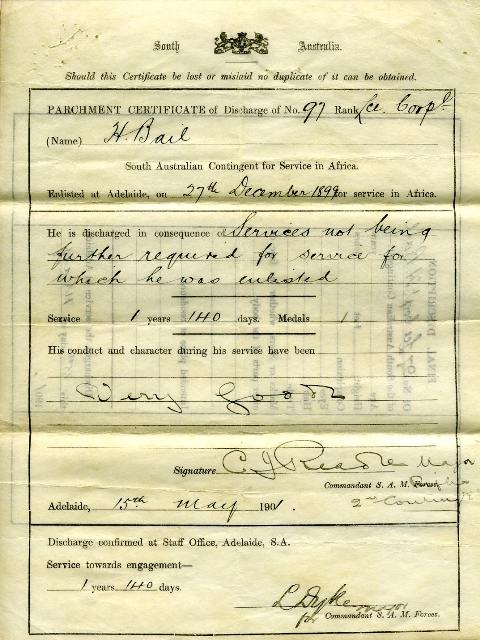 South Australia.
Should this Certificate be lost or mislaid no duplicate of it can be obtained.
PARCHMENT CERTIFICATE of Discharge of No. 97 Rank Lce. Corpl
(Name) H. Bail
South Australian Contingent for Service in Africa.
Enlisted at Adelaide, on 27th December 1899 for service in Africa.
He is discharged in consequence of Services not being
further required for service for
which he was enlisted
Service 1 years 140 days. Medals 1
His conduct and character during his service have been
Very Good
Signature C J Reade Major
Commandant S. A. M. Forces.
2nd
Adelaide, 15th May 1901.
Discharge confirmed at Staff Office, Adelaide, S.A.
Service towards engagement—
1 years 140 days.
L Dyke Major
for Commandant S. A. M. Forces.